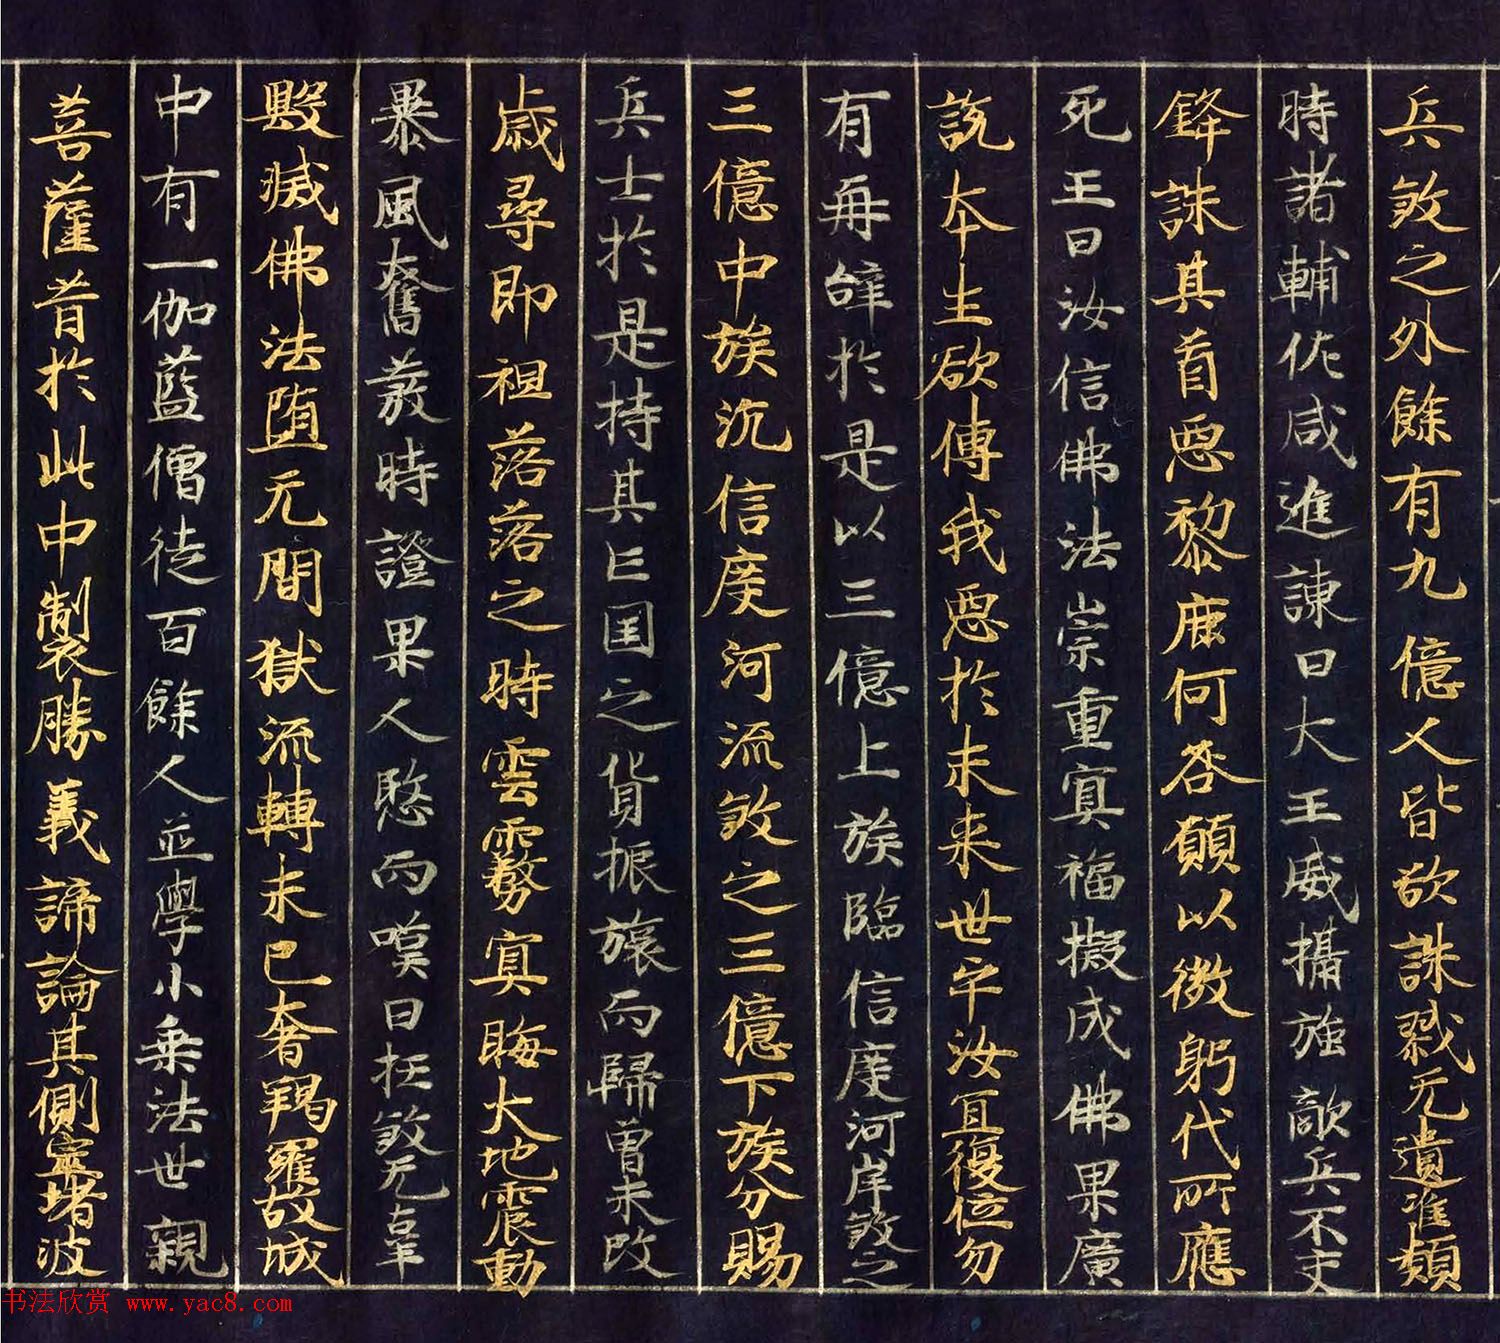 兵敘之外餘有九億人皆欲誅戮无遺准類
時諸輔佐咸進諫曰大王威攝強敵兵不交
鋒誅其首惡黎庶何咎願以微躬代所應
死王曰汝信佛法崇重冥福擬成佛果廣
說本生欲傳我惡於未来世乎汝宜復位勿
有再辞於是以三億上族臨信度河岸煞之
三億中族沉信度河流煞之三億下族分賜
兵士於是持其亡国之貨振旅而歸曽未改
歳尋即徂落落之時雲霧冥晦大地震動
暴風奮發時證果人愍而嘆曰枉煞无辜
毀滅佛法墮无間獄流轉未已奢羯羅故城
中有一伽藍僧徒百餘人並學小乗法世親
菩薩昔於此中製勝義諦論其側窣堵波
书法欣赏 www.yac8.com